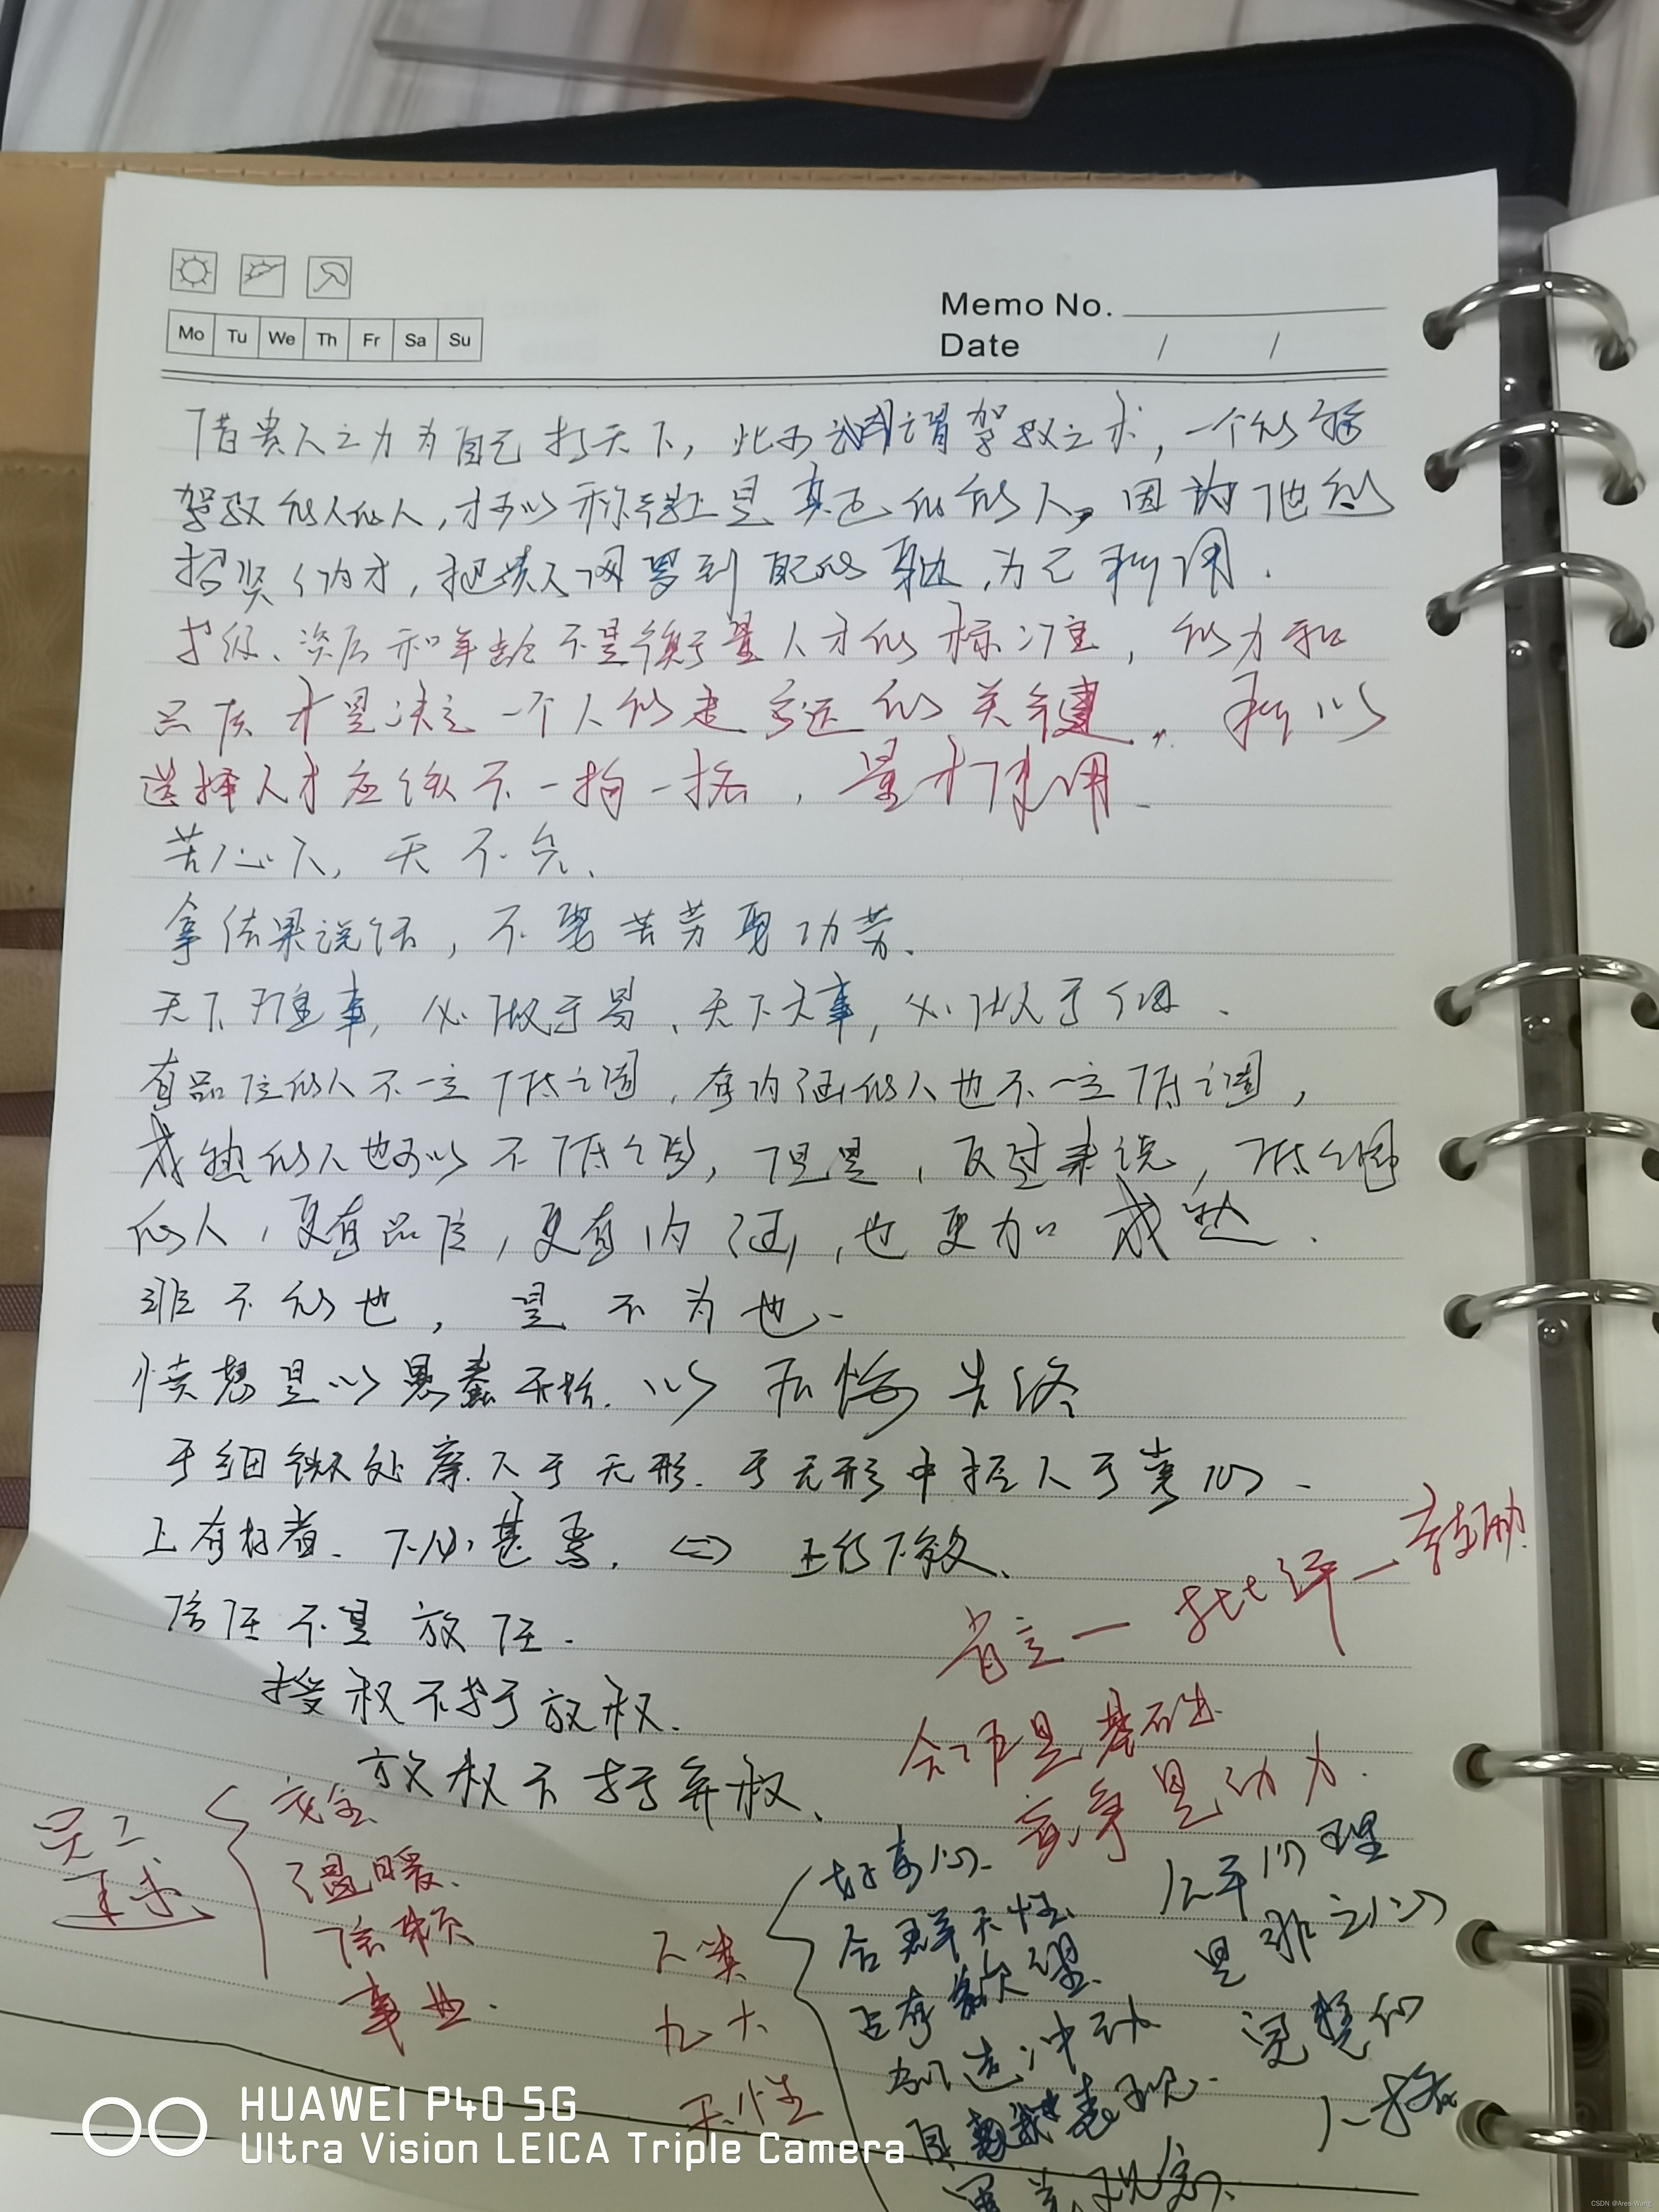 Mo Tu We Th Fr Sa Su
Memo No.
Date / /
借贵人之力为自己打天下，此可谓驾驭之术，一个能够
驾驭能人的人，才可以称得上是真正的能人，因为他能
招贤纳才，把贵人网罗到自己的身边，为己所用．
学级、资历和年龄不是衡量人才的标准，能力和
品质才是决定一个人能走多远的关键．所以
选择人才应该不一拘一格，量才使用．
苦心人，天不负．
拿结果说话，不要苦劳要功劳．
天下难事，必做于易、天下大事，必做于细．
有品位的人不一定低调，有内涵的人也不一定低调，
成熟的人也可以不低调，但是，反过来说，低调
的人，更有品位，更有内涵，也更加成熟．
非不能也，是不为也．
愤怒是以愚蠢开始．以后悔告终
于细微处察人于无形．于无形中控人于掌心．
上有好者．下必甚焉．<=>上行下效、
信任不是放任．
授权不等于放权．
放权不等于弃权、
肯定一批评一鼓励
合作是基础
竞争是动力．
员工
安全
温暖、
信赖
事业．
人类
九大
天性
好奇心
合群天性
占有欲望
创造冲动
自我表现．
公平心理
是非之心
完整的
人格